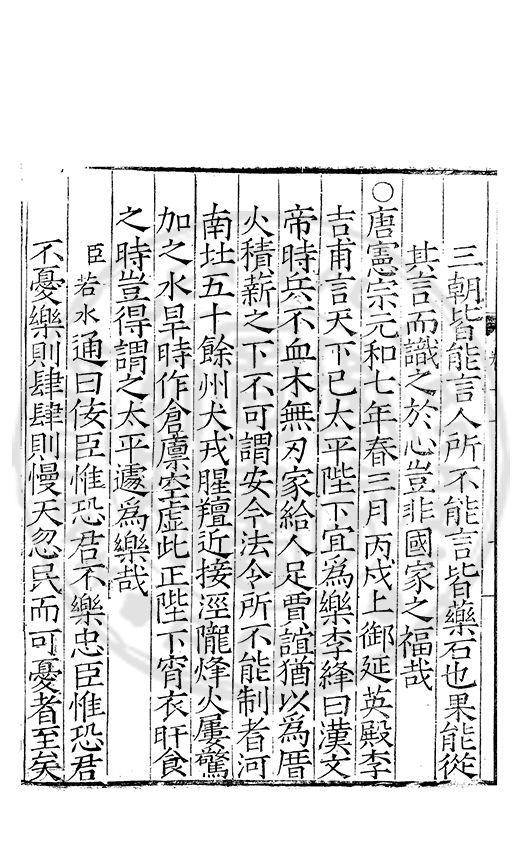 三朝皆能言人所不能言皆藥石也果能從
其言而識之於心豈非國家之福哉
○唐憲宗元和七年春三月丙戍上御延英殿李
吉甫言天下已太平陛下宜為樂李絳曰漢文
帝時兵不血木無刃家給人足賈誼猶以為厝
火積薪之下不可謂安今法令所不能制者河
南北五十餘州犬戎腥羶近接涇隴烽火屢驚
加之水旱時作倉廪空虛此正陛下宵衣旰食
之時豈得謂之太平遽為樂哉
臣若水通曰佞臣惟恐君不樂忠臣惟恐君
不憂樂則肆肆則慢天忽民而可憂者至矣